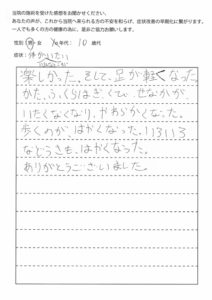 当院の施術を受けた感想をお聞かせください。
あなたの声が、これから当院へ来られる方の不安を和らげ、症状改善の早期化に繋がります。
一人でも多くの方の健康の為に、是非ご協力お願いします。
男・女 年代:10歳代
症状:体がいたい
楽しかった。そして、足が軽くなった。
かた、ふくらはぎ、くび、せなかが
いたくなくなり、やわらかくなった。
歩くのが、はやくなった。いろいろ
なとうさも、はやくなった。
ありがとうございました。